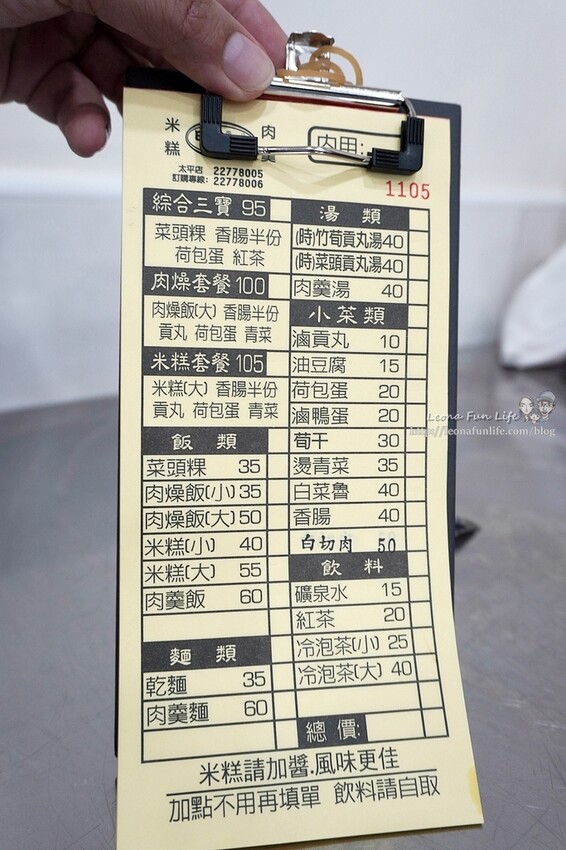 米糕
肉
內用:
太平店 22778005
訂購專線: 22778006
1105
綜合三寶 95
菜頭粿 香腸半份
荷包蛋 紅茶
肉燥套餐 100
肉燥飯(大) 香腸半份
貢丸 荷包蛋 青菜
米糕套餐 105
米糕(大) 香腸半份
貢丸 荷包蛋 青菜
飯類
菜頭粿 35
肉燥飯(小) 35
肉燥飯(大) 50
米糕(小) 40
米糕(大) 55
肉羹飯 60
麵類
乾麵 35
肉羹麵 60
湯類
(時)竹荀貢丸湯 40
(時)菜頭貢丸湯 40
肉羹湯 40
小菜類
滷貢丸 10
油豆腐 15
荷包蛋 20
滷鴨蛋 20
荀干 30
燙青菜 35
白菜魯 40
香腸 40
白切肉 50
飲料
礦泉水 15
紅茶 20
冷泡茶(小) 25
冷泡茶(大) 40
總價:
米糕請加醬.風味更佳
加點不用再填單 飲料請自取
Leona Fun Life
http://leonafunlife.com/blog